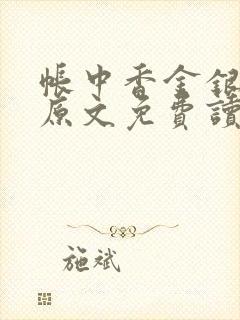 帳中香金銀
原文免費讀
施斌